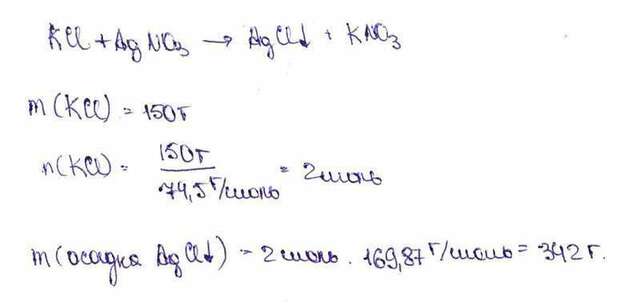 KCl + AgNO₃ → AgCl↓ + KNO₃
m(KCl) = 150г
n(KCl) = 150г / 74,5 г/моль = 2моль
m(осадка AgCl↓) = 2моль · 169,87 г/моль = 342 г.